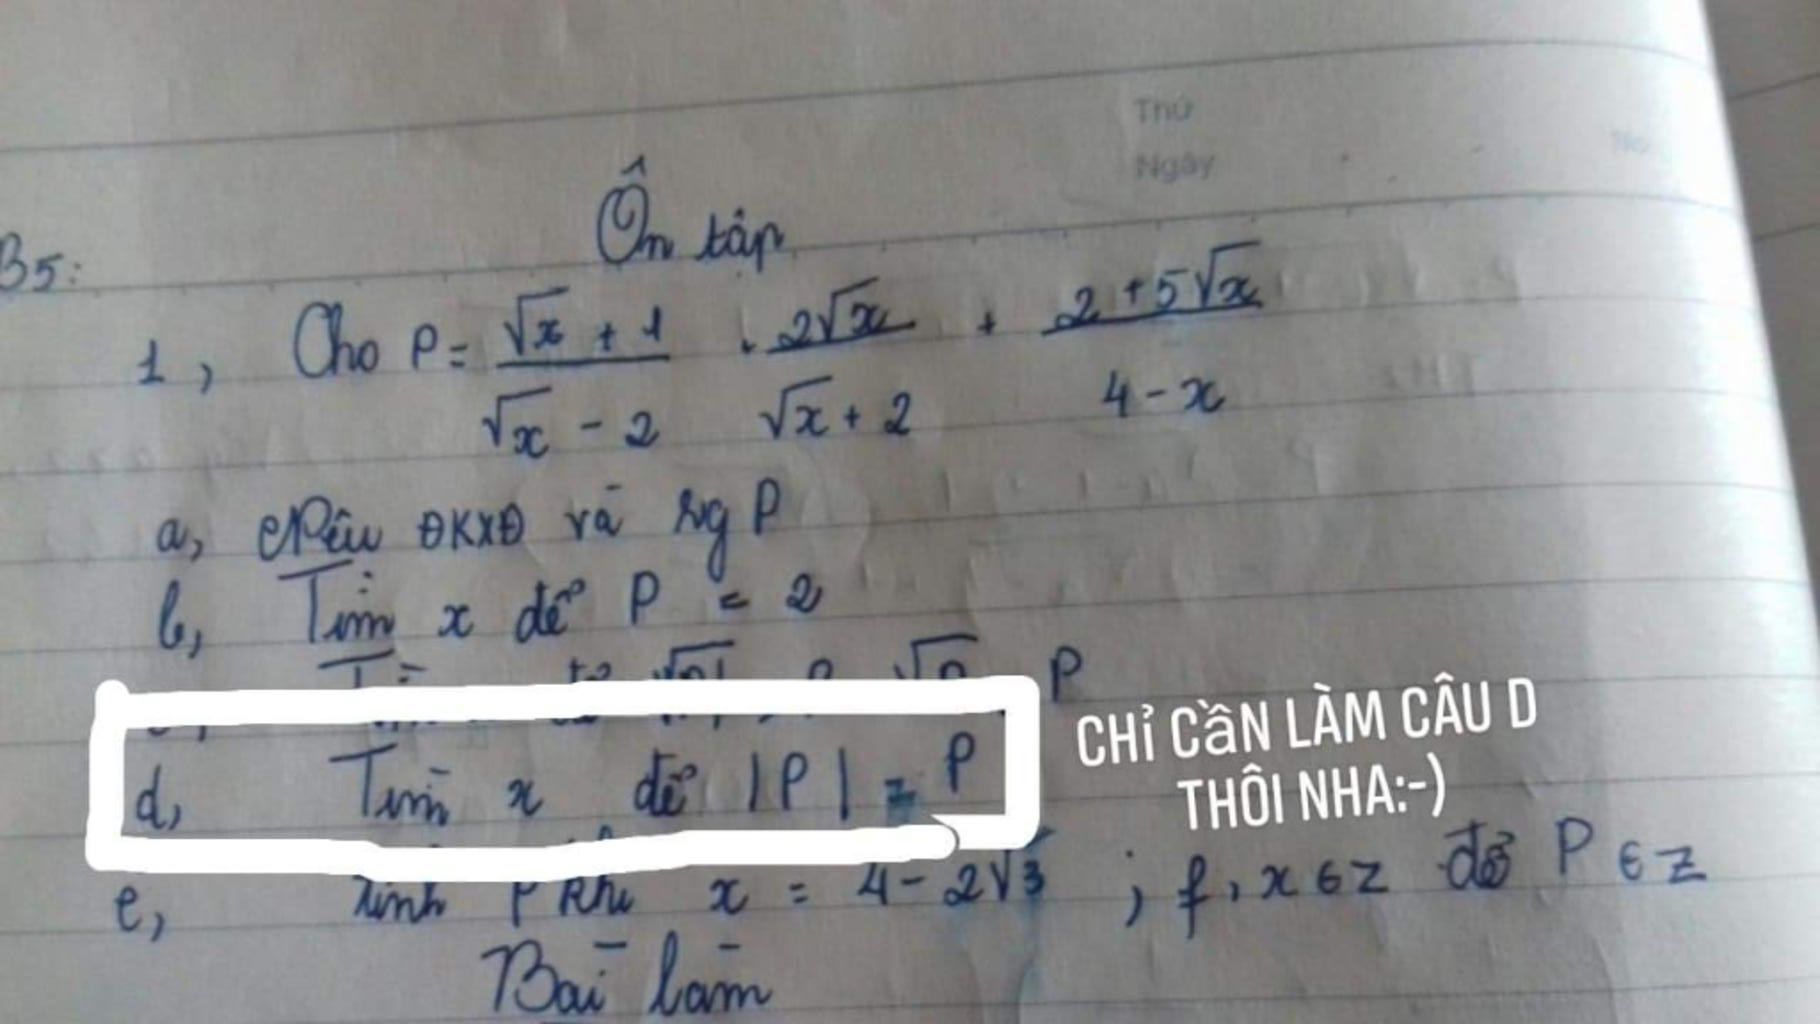 Thứ
Ngày
No.
Ôn tập
B5:
1, Cho P = \frac{\sqrt{x} + 1}{\sqrt{x} - 2} \cdot \frac{2\sqrt{x}}{\sqrt{x} + 2} + \frac{2 + 5\sqrt{x}}{4 - x}
a, Nêu ĐKXĐ và rg P
b, Tìm x để P = 2
P
d, Tìm x để |P| = P
CHỈ CẦN LÀM CÂU D
THÔI NHA:-)
e, Tính P khi x = 4 - 2√3 ; f, x ∈ Z để P ∈ Z
Bài làm